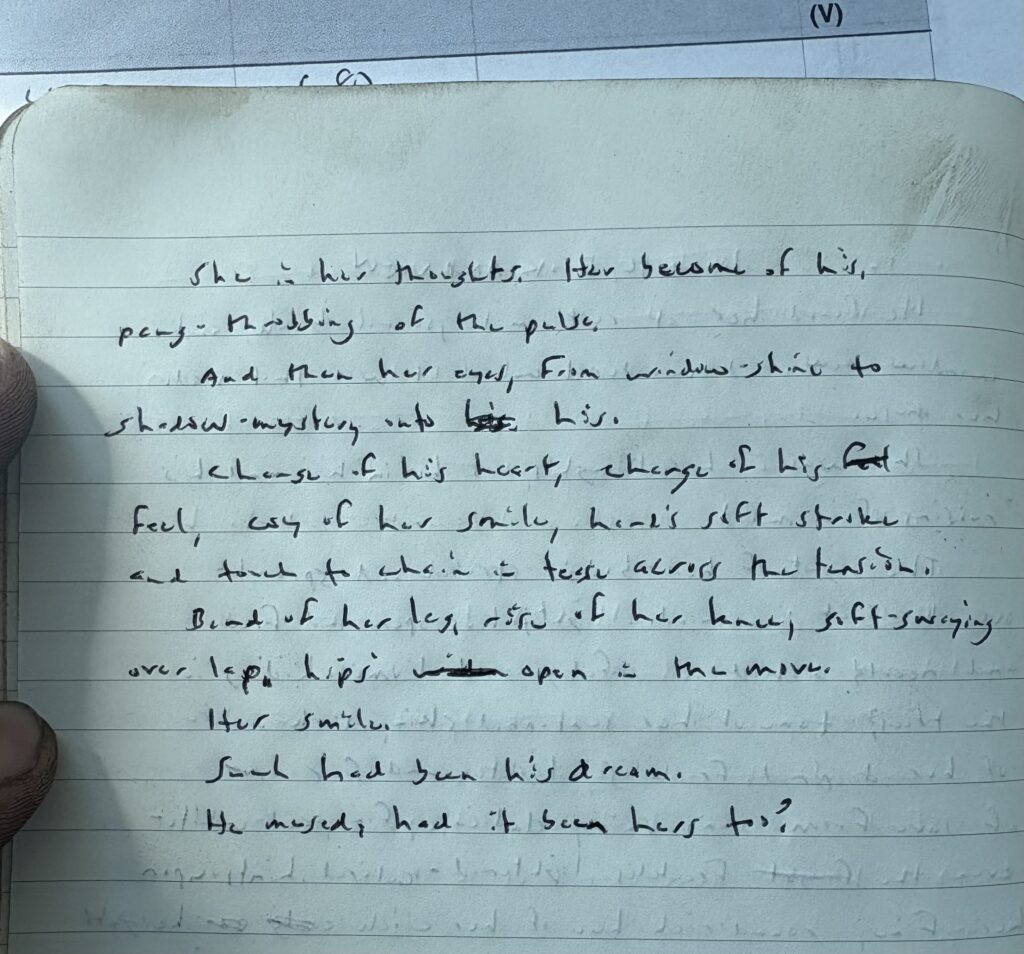 (V)
She in her thoughts. Her become of his,
pang-throbbing of the pulse.
And then her eyes, from window-shine to
shadow-mystery onto his.
Change of his heart, change of his
feel, cosy of her smile, hand's soft stroke
and touch to chain in tease across the tension.
Bend of her leg, rise of her knee, soft-swaying
over lap, hips' open in the move.
Her smile.
Such had been his dream.
He mused, had it been hers too?